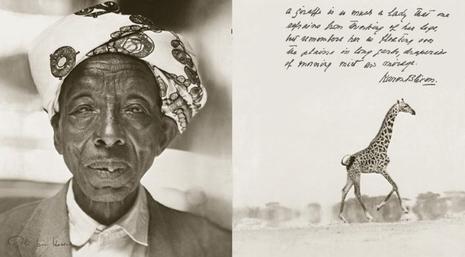 a giraffe is so much a lady that one
refrains from thinking of her legs,
but remembers her as floating over
the plains in long garbs, draperies
of morning mist or mirage.